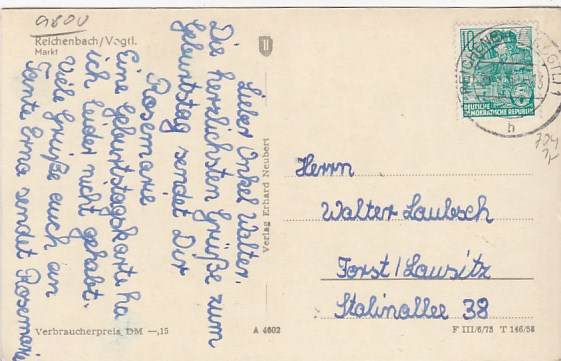 9800
Reichenbach/Vogtl.
Markt
Lieber Onkel Walter,
Die herzlichsten Grüße zum
Geburtstag sendet Dir
Rosemarie
Eine Geburtstagskarte ha
ich leider nicht gehabt.
Viele Grüße auch an
Tante Erna sendet Rosemarie
Verbraucherpreis DM —,15
A 4602
Verlag Erhard Neubert
10
DEUTSCHE
DEMOKRATISCHE REPUBLIK
h
Herrn
Walter Laubsch
Forst/Lausitz
Stalinallee 38
F III/6/75 T 146/58